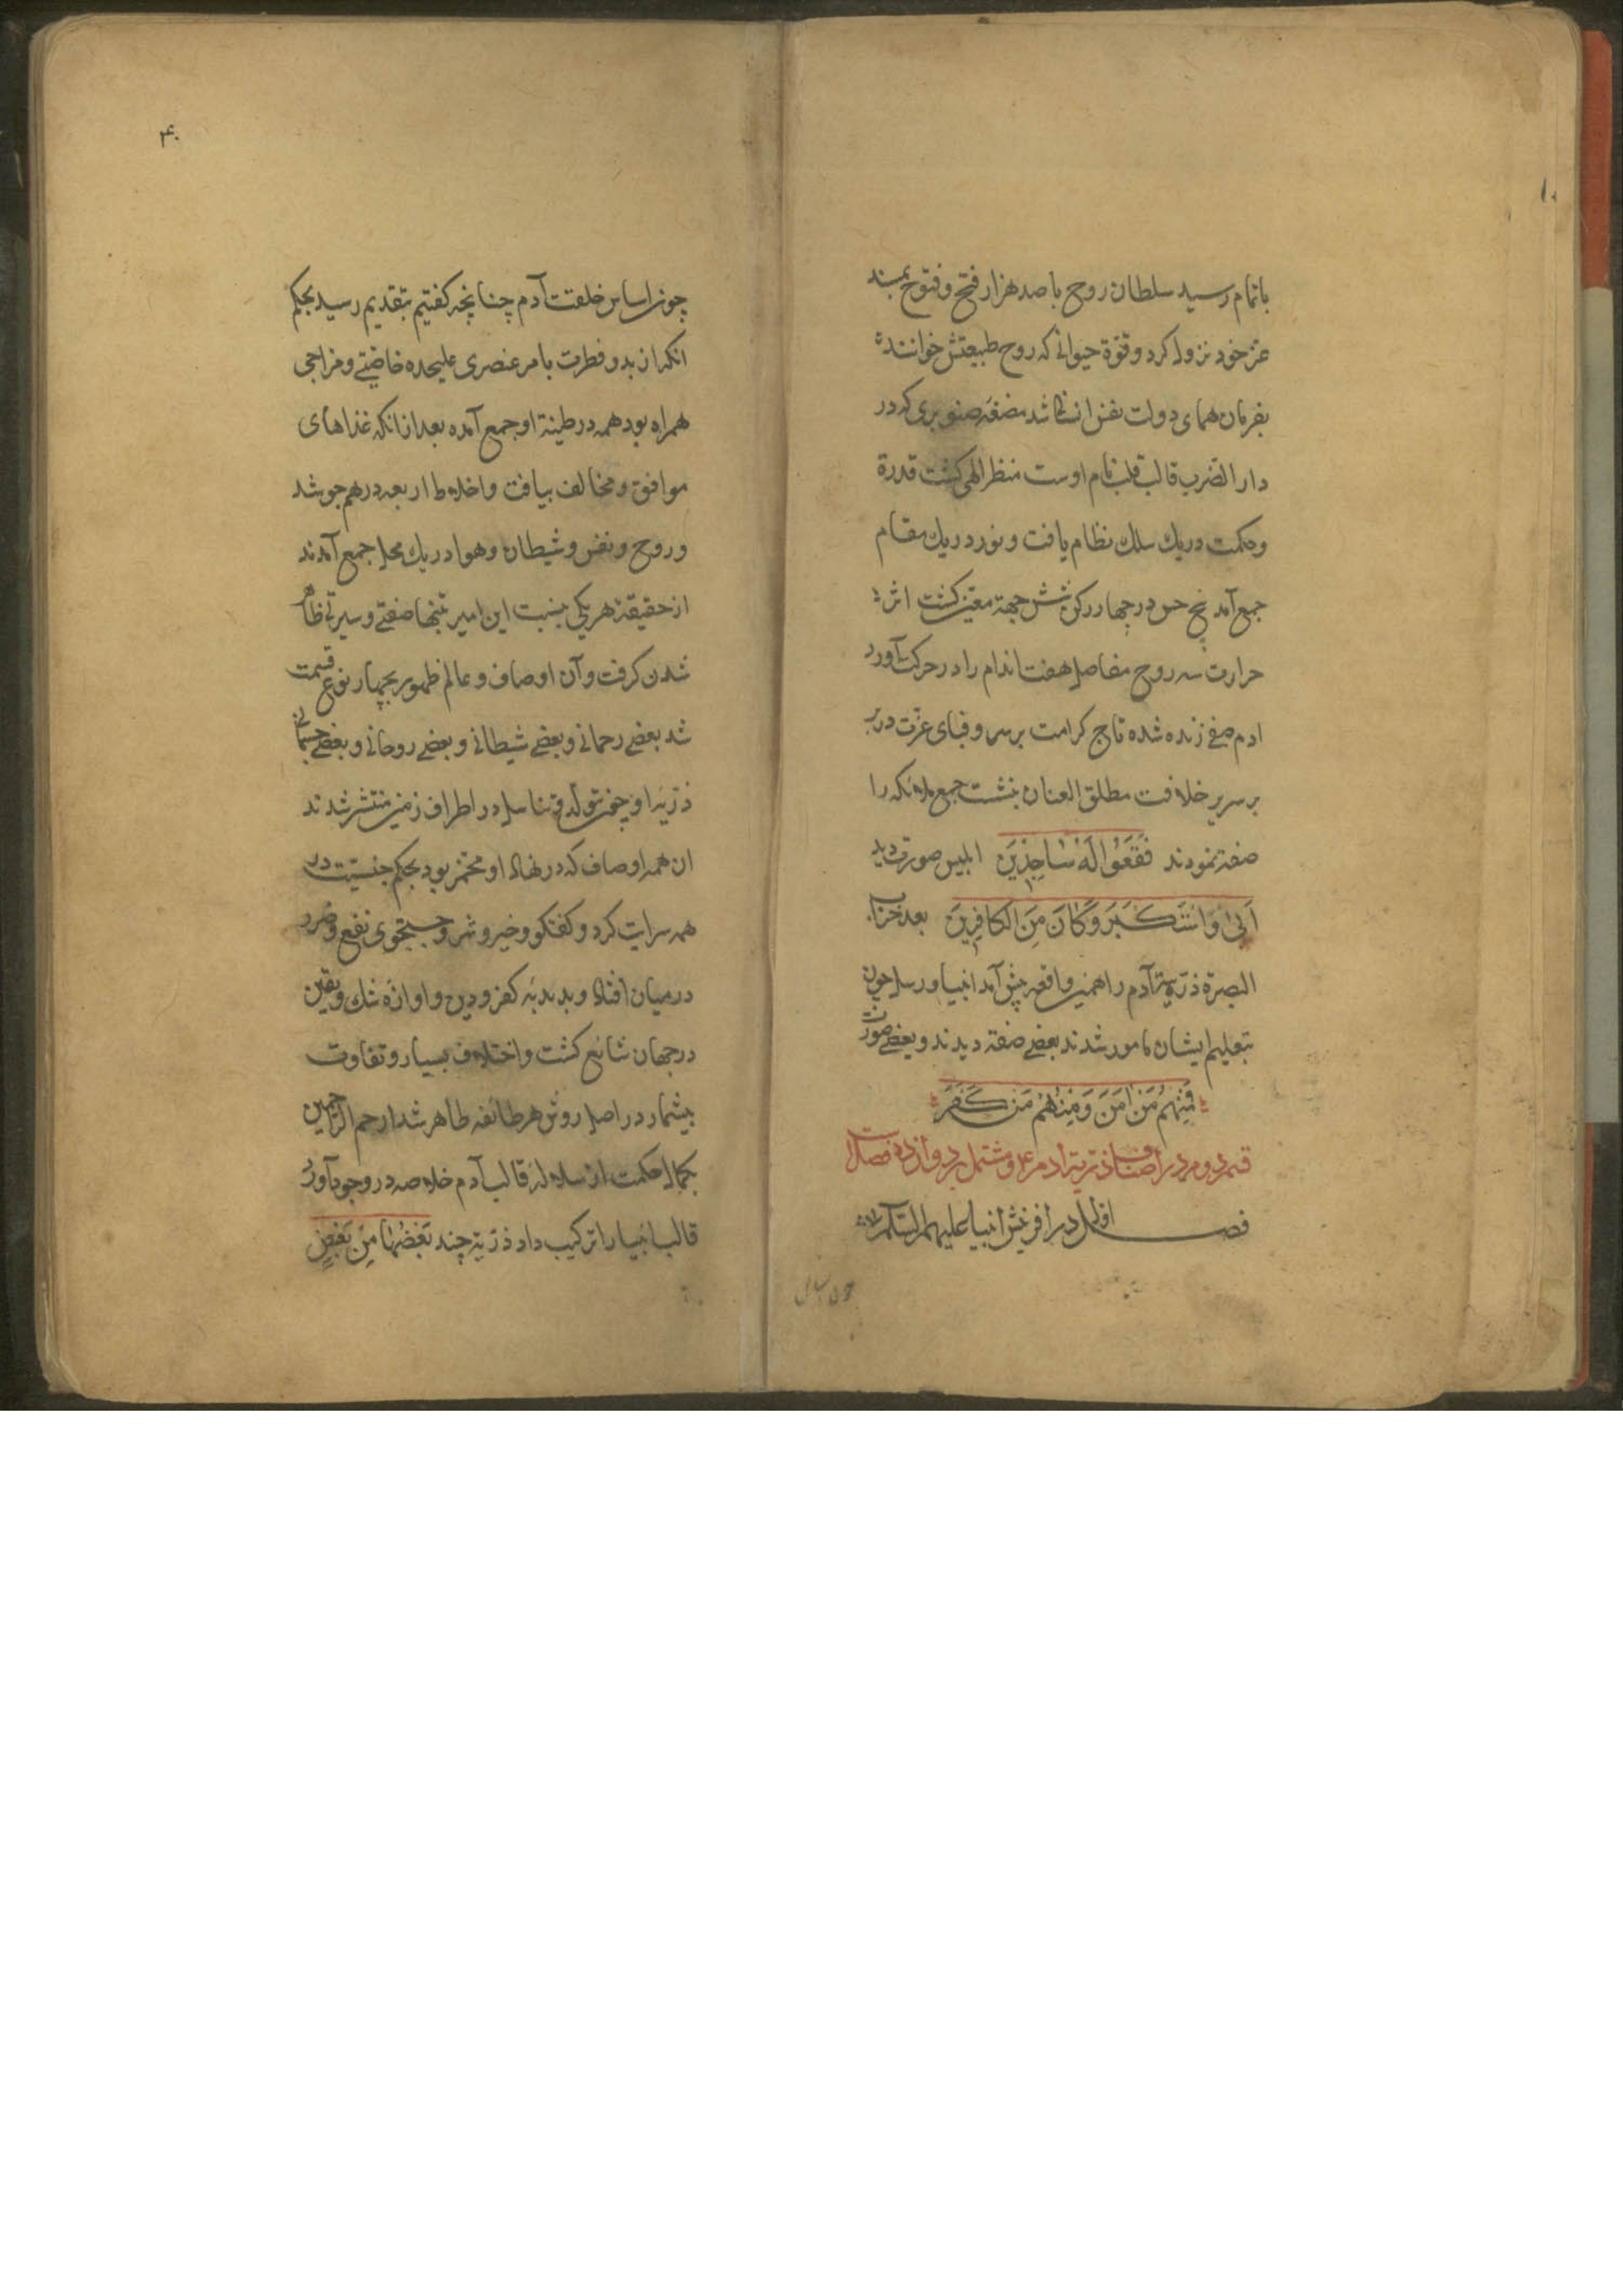 باتمام رسید سلطان روح با صد هزار فتح و فتوح بمسند
عز خود نزول کرد و قوة حیوانی که روح طبیعتش خوانند
بفرمان همای دولت نفس انسانی شد مضغه صنوبری که در
دار الضرب قالب قلب نام اوست منظر الهی کشت قدرة
و حکمت در یك سلك نظام یافت و نور در یك مقام
جمع آمد پنج حس در چهار رکن شش جهة معین کشت اثر
حرارت سه روح مفاصل هفت اندام را در حرکت آورد
ادم صفی زنده شده تاج کرامت بر سر و قبای عزت در بر
بر سریر خلافت مطلق العنان بنشست جمع ملائکه را
صفة نمودند فَقَعُوا لَهُ سَاجِدِینَ ابلیس صورت دید
اَبی وَاسْتَکْبَرَ وَکَانَ مِنَ الکَافِرِینَ بعد خراب
البصرة ذریة آدم را همین واقعه پیش آمد انبیا و رسل چون
بتعلیم ایشان مامور شدند بعضی صفة دیدند و بعضی صورت
فَمِنْهُم مَنْ امَنَ وَمِنْهُم مَن کَفَرَ
قسم دوم در اصناف ذریة ادم ع م و مشتمل بر دوازده فصل
فصل اول در افرینش انبیا علیهم السلام
۴۰
چون اساس خلقت آدم چنانچه کفتیم بتقدیم رسید بحکم
انکه از بدو فطرت با هر عنصری علیحده خاصیتی و مزاجی
همراه بود همه در طینة او جمع آمده بعد از انکه غذاهای
موافق و مخالف بیافت و اخلاط اربعه درهم جوشد
و روح و نفس و شیطان و هوا در یك محل جمع آمدند
از حقیقة هر یکی بنسبت این امیر تنها صفتی و سیرتی ظاهر
شدن کرفت و آن اوصاف و عالم ظهور بچهار نوع قسمت
شد بعضی رحمانی و بعضی شیطانی و بعضی روحانی و بعضی جسمانی
ذریة او چون بتولد و تناسل در اطراف زمین منتشر شدند
ان همه اوصاف که در نهاد او مخمر بود بحکم جنسیت در
همه سرایت کرد و کفتکو و خیر و شر و جستجوی نفع و ضرر
در میان افتاد و بدبدبه کفر و دین و اوازه شك و یقین
در جهان شائع کشت و اختلاف بسیار و تفاوت
بیشمار در اصل روش هر طائفه ظاهر شد ارحم الراحمین
بکمال حکمت از سلاله قالب آدم خلاصه در وجود آورد
قالب انبیا را ترکیب داد ذریة چند بَعْضُهَا مِنْ بَعْضٍ